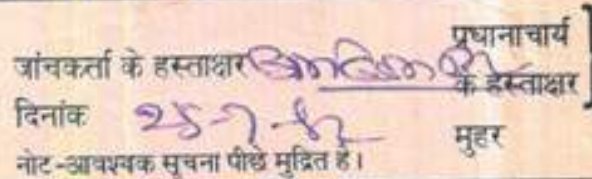 प्रधानाचार्य
जांचकर्ता के हस्ताक्षर के हस्ताक्षर
दिनांक मुहर
नोट-आवश्यक सूचना पीछे मुद्रित है।